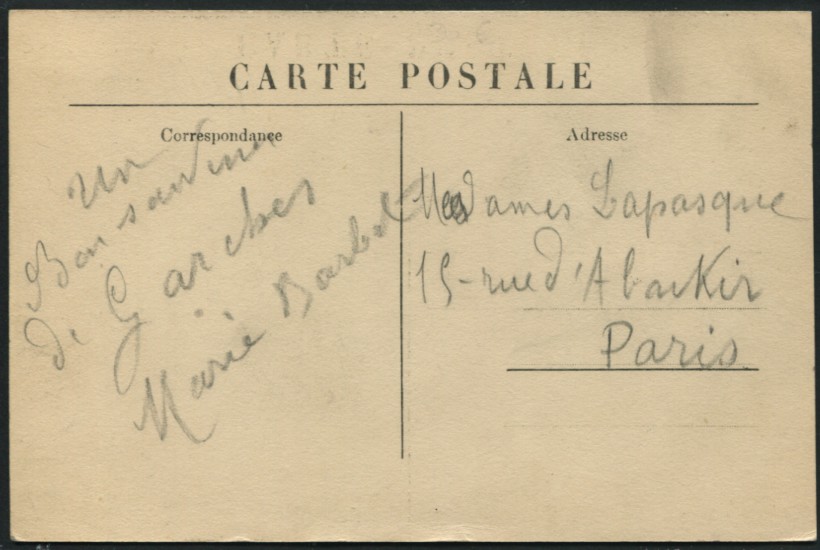 CARTE POSTALE
Correspondance
Adresse
Un
Bon souvenir
de Garches
Marie
Mesdames Lapasque
15-rue d'Aboukir
Paris